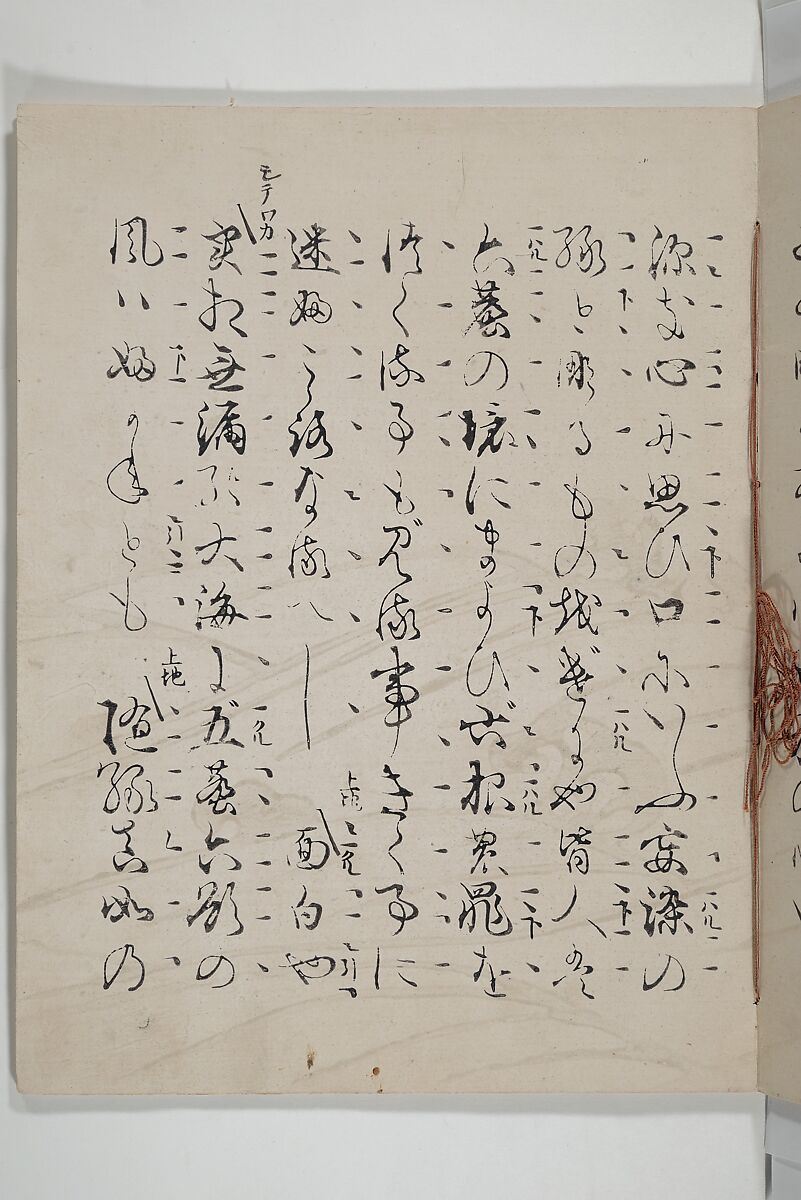 深き心に思ひ口にいふ妄染の
縁と成るものをげにや皆人は
六塵の境にまよひ六根の罪を
つくる事も見る事きく事に
迷ふこゝろなるべし 面白や
実相無漏の大海に五塵六欲の
風ハふかねとも 随縁真如の